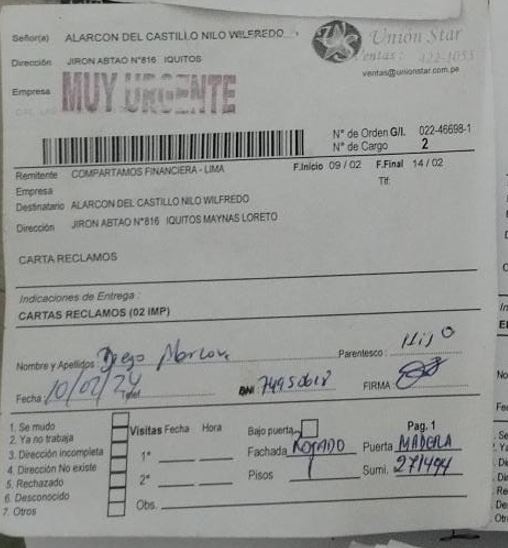 Señor(a) ALARCON DEL CASTILLO NILO WILFREDO
Unión Star
Dirección JIRON ABTAO N°816 IQUITOS
Ventas: 422-1055
ventas@unionstar.com.pe
Empresa
MUY URGENTE
N° de Orden G/I. 022-46698-1
N° de Cargo 2
Remitente COMPARTAMOS FINANCIERA - LIMA
F.Inicio 09 / 02 F.Final 14 / 02
Empresa
Tlf:
Destinatario ALARCON DEL CASTILLO NILO WILFREDO
Dirección JIRON ABTAO N°816 IQUITOS MAYNAS LORETO
CARTA RECLAMOS
Indicaciones de Entrega :
CARTAS RECLAMOS (02 IMP)
Nombre y Apellidos : Diego
Parentesco : Hijo
Fecha : 10/02/24 Telef. DNI 74950618 FIRMA :
1. Se mudo
2. Ya no trabaja
3. Dirección incompleta
4. Dirección No existe
5. Rechazado
6. Desconocido
7. Otros
Visitas Fecha Hora
1°
2°
Obs.
Bajo puerta
Pag. 1
Fachada ROSADO Puerta MADERA
Pisos 1 Sumi. 271494